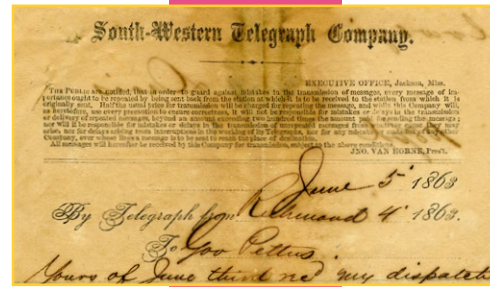 South-Western Telegraph Company.
EXECUTIVE OFFICE, Jackson, Miss.
THE PUBLIC are notified, that in order to guard against mistakes in the transmission of messages, every message of im-
portance ought to be repeated by being sent back from the station at which it is to be received to the station from which it is
originally sent. Half the usual price for transmission will be charged for repeating the message, and while this Company will,
as heretofore, use every precaution to ensure correctness, it will not be responsible for mistakes or delays in the transmission
or delivery of repeated messages, beyond an amount exceeding two hundred times the amount paid for sending the message;
nor will it be responsible for mistakes or delays in the transmission of unrepeated messages from whatever cause they may
arise, nor for delays arising from interruptions in the working of its Telegraphs, nor for any mistake or omission of any other
Company, over whose lines a message is to be sent to reach the place of destination.
All messages will hereafter be received by this Company for transmission, subject to the above conditions.
JNO. VAN HORNE, Pres't.
June 5 1863
By Telegraph from Richmond 4 1863.
To Gov Pettus.
Yours of June third recd my dispatch